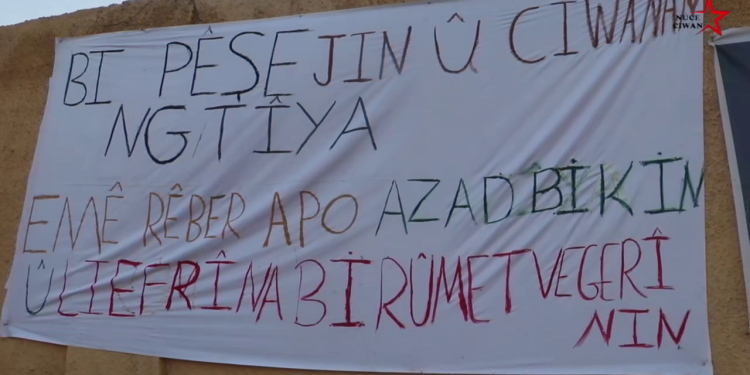 NUÇE CIWAN
BI PÊŞE JIN Û CIWANAN
NGTÎYA
EMÊ RÊBER APO AZAD BİKİN
Û LI EFRÎNA BI RÛMET VEGERÎ
NIN